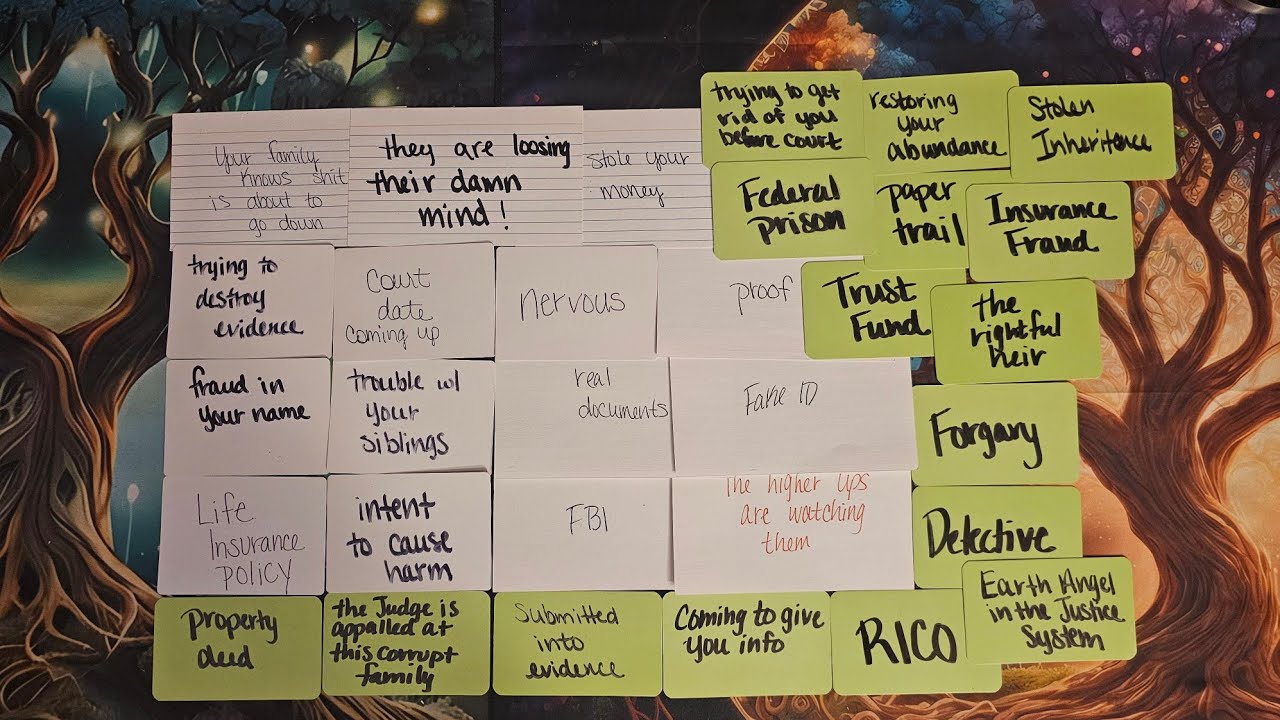 Your family
knows shit
is about to
go down
they are loosing
their damn
mind!
stole your
money
trying to get
rid of you
before court
restoring
your
abundance
Stolen
Inheritence
Federal
prison
paper
trail
Insurance
Fraud
trying to
destroy
evidence
Court
date
coming up
nervous
proof
Trust
Fund
the
rightful
heir
fraud in
your name
trouble w/
your
siblings
real
documents
Fake ID
Forgary
Life
Insurance
policy
intent
to cause
harm
FBI
The higher ups
are watching
them
Detective
Property
deed
the Judge is
appalled at
this corrupt
family
Submitted
into
evidence
Coming to give
you info
RICO
Earth Angel
in the Justice
System